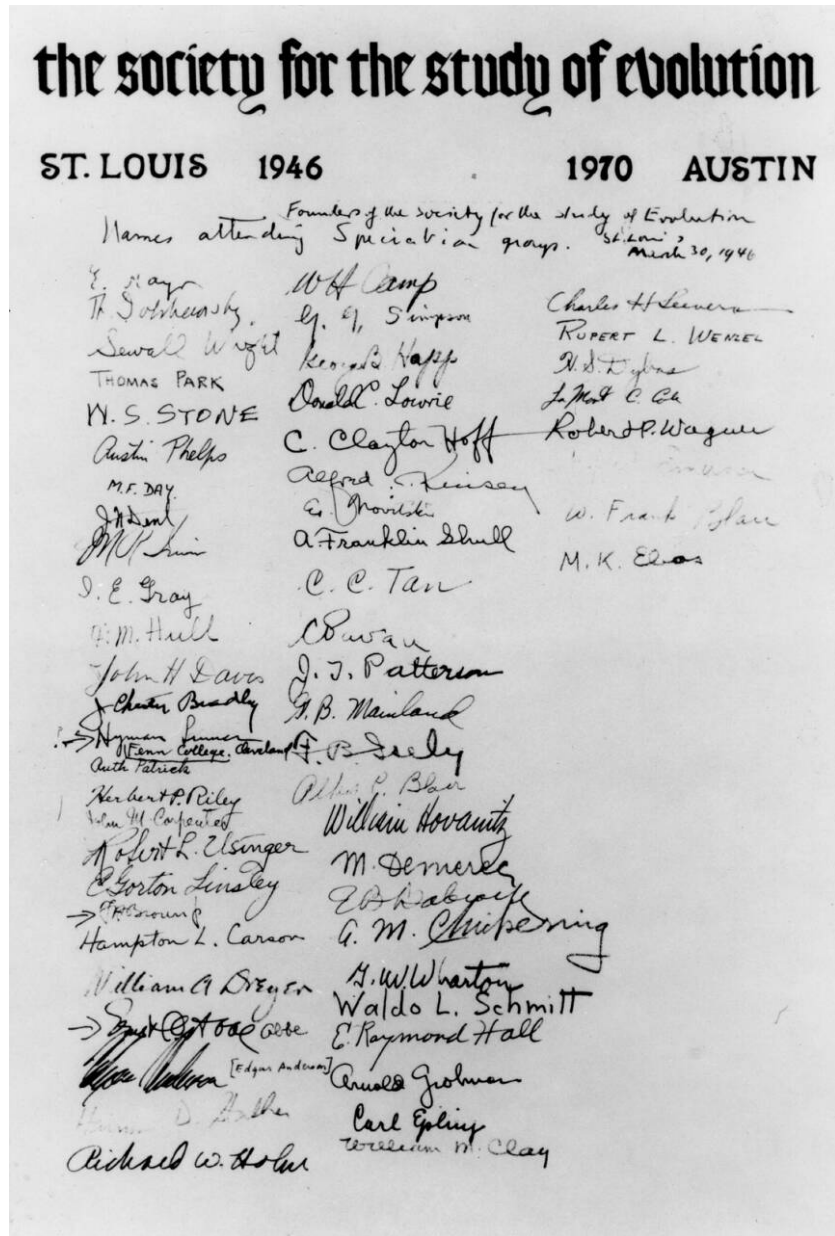 the society for the study of evolution
ST. LOUIS 1946 1970 AUSTIN
Founders of the Society for the study of Evolution
Names attending Speciation groups. St. Louis
March 30, 1946
E. Mayr
Th Dobzhansky
Sewall Wright
THOMAS PARK
W. S. STONE
Austin Phelps
M. F. DAY.
J N Dent
I. E. Gray
F. M. Hull
John H Davis
J Chester Bradley
Hyman
Fenn College, Cleveland
Ruth Patrick
Herbert P. Riley
John M Carpenter
Robert L. Usinger
E Gorton Linsley
Brown
Hampton L. Carson
William A Dreyer
Abbe
[Edgar Anderson]
D.
Richard W. Holm
W H Camp
G. G. Simpson
George B. Happ
Donald C. Lowrie
C. Clayton Hoff
Alfred C. Kinsey
E. Novitski
A. Franklin Shull
C. C. Tan
C Pavan
J. T. Patterson
G. B. Mainland
F. B.
Albert P. Blair
William Hovanitz
M. Demerec
E B Babcock
A. M. Chickering
G. W. Wharton
Waldo L. Schmitt
E. Raymond Hall
Arnold Grobman
Carl Epling
William M. Clay
Charles H Seevers
RUPERT L. WENZEL
H. S. Dybas
LaMont C. Cole
Robert P. Wagner
W. Frank Blair
M. K. Elias